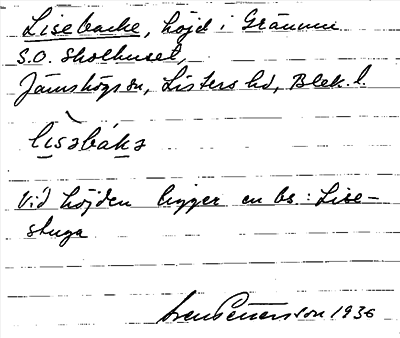 Lisebacke, höjd i Grännum
S.O. Skolhuset,
Jämshögs sn, Listers hd, Blek. l.
lìsəbákə
Vid höjden ligger en bs: Lise-
stuga
Sven Petersson 1936